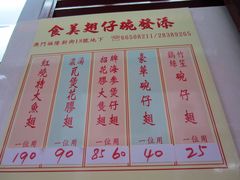 食美翅仔碗發添
澳門福隆新街18號地下 ☎66508211/28389265
紅燒特大魚翅
一位用
190
南瓜煲花膠翅
一位用
90
海參煲仔翅
招花膠大翅
一位用
85 60
豪華碗仔翅
一位用
40
竹笙碗仔翅
雞絲
一位用
25